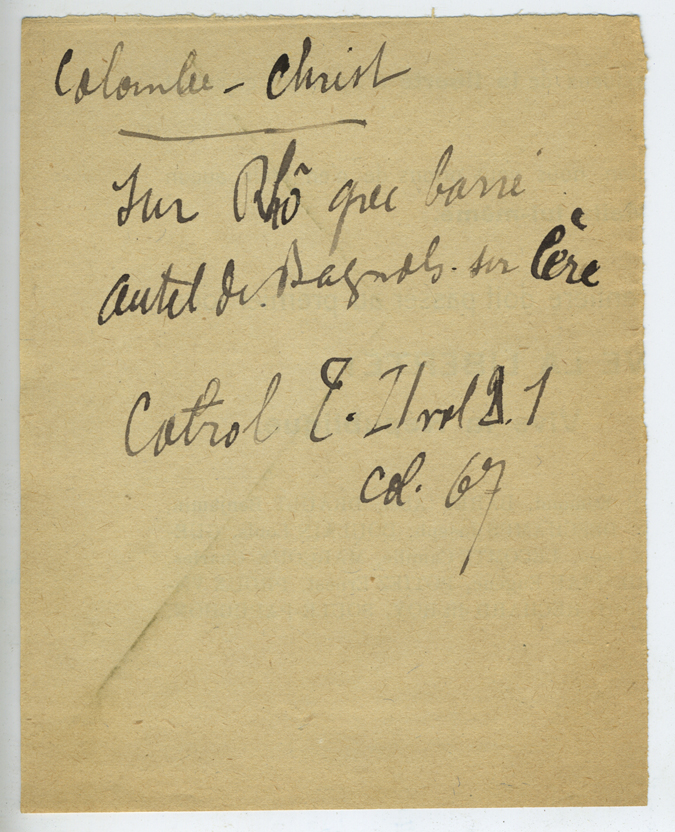 Colombe - Christ
sur Rhô grec barré
autel de Bagnols. sur Cère
Catrol T. II vol 2. 1
col. 67